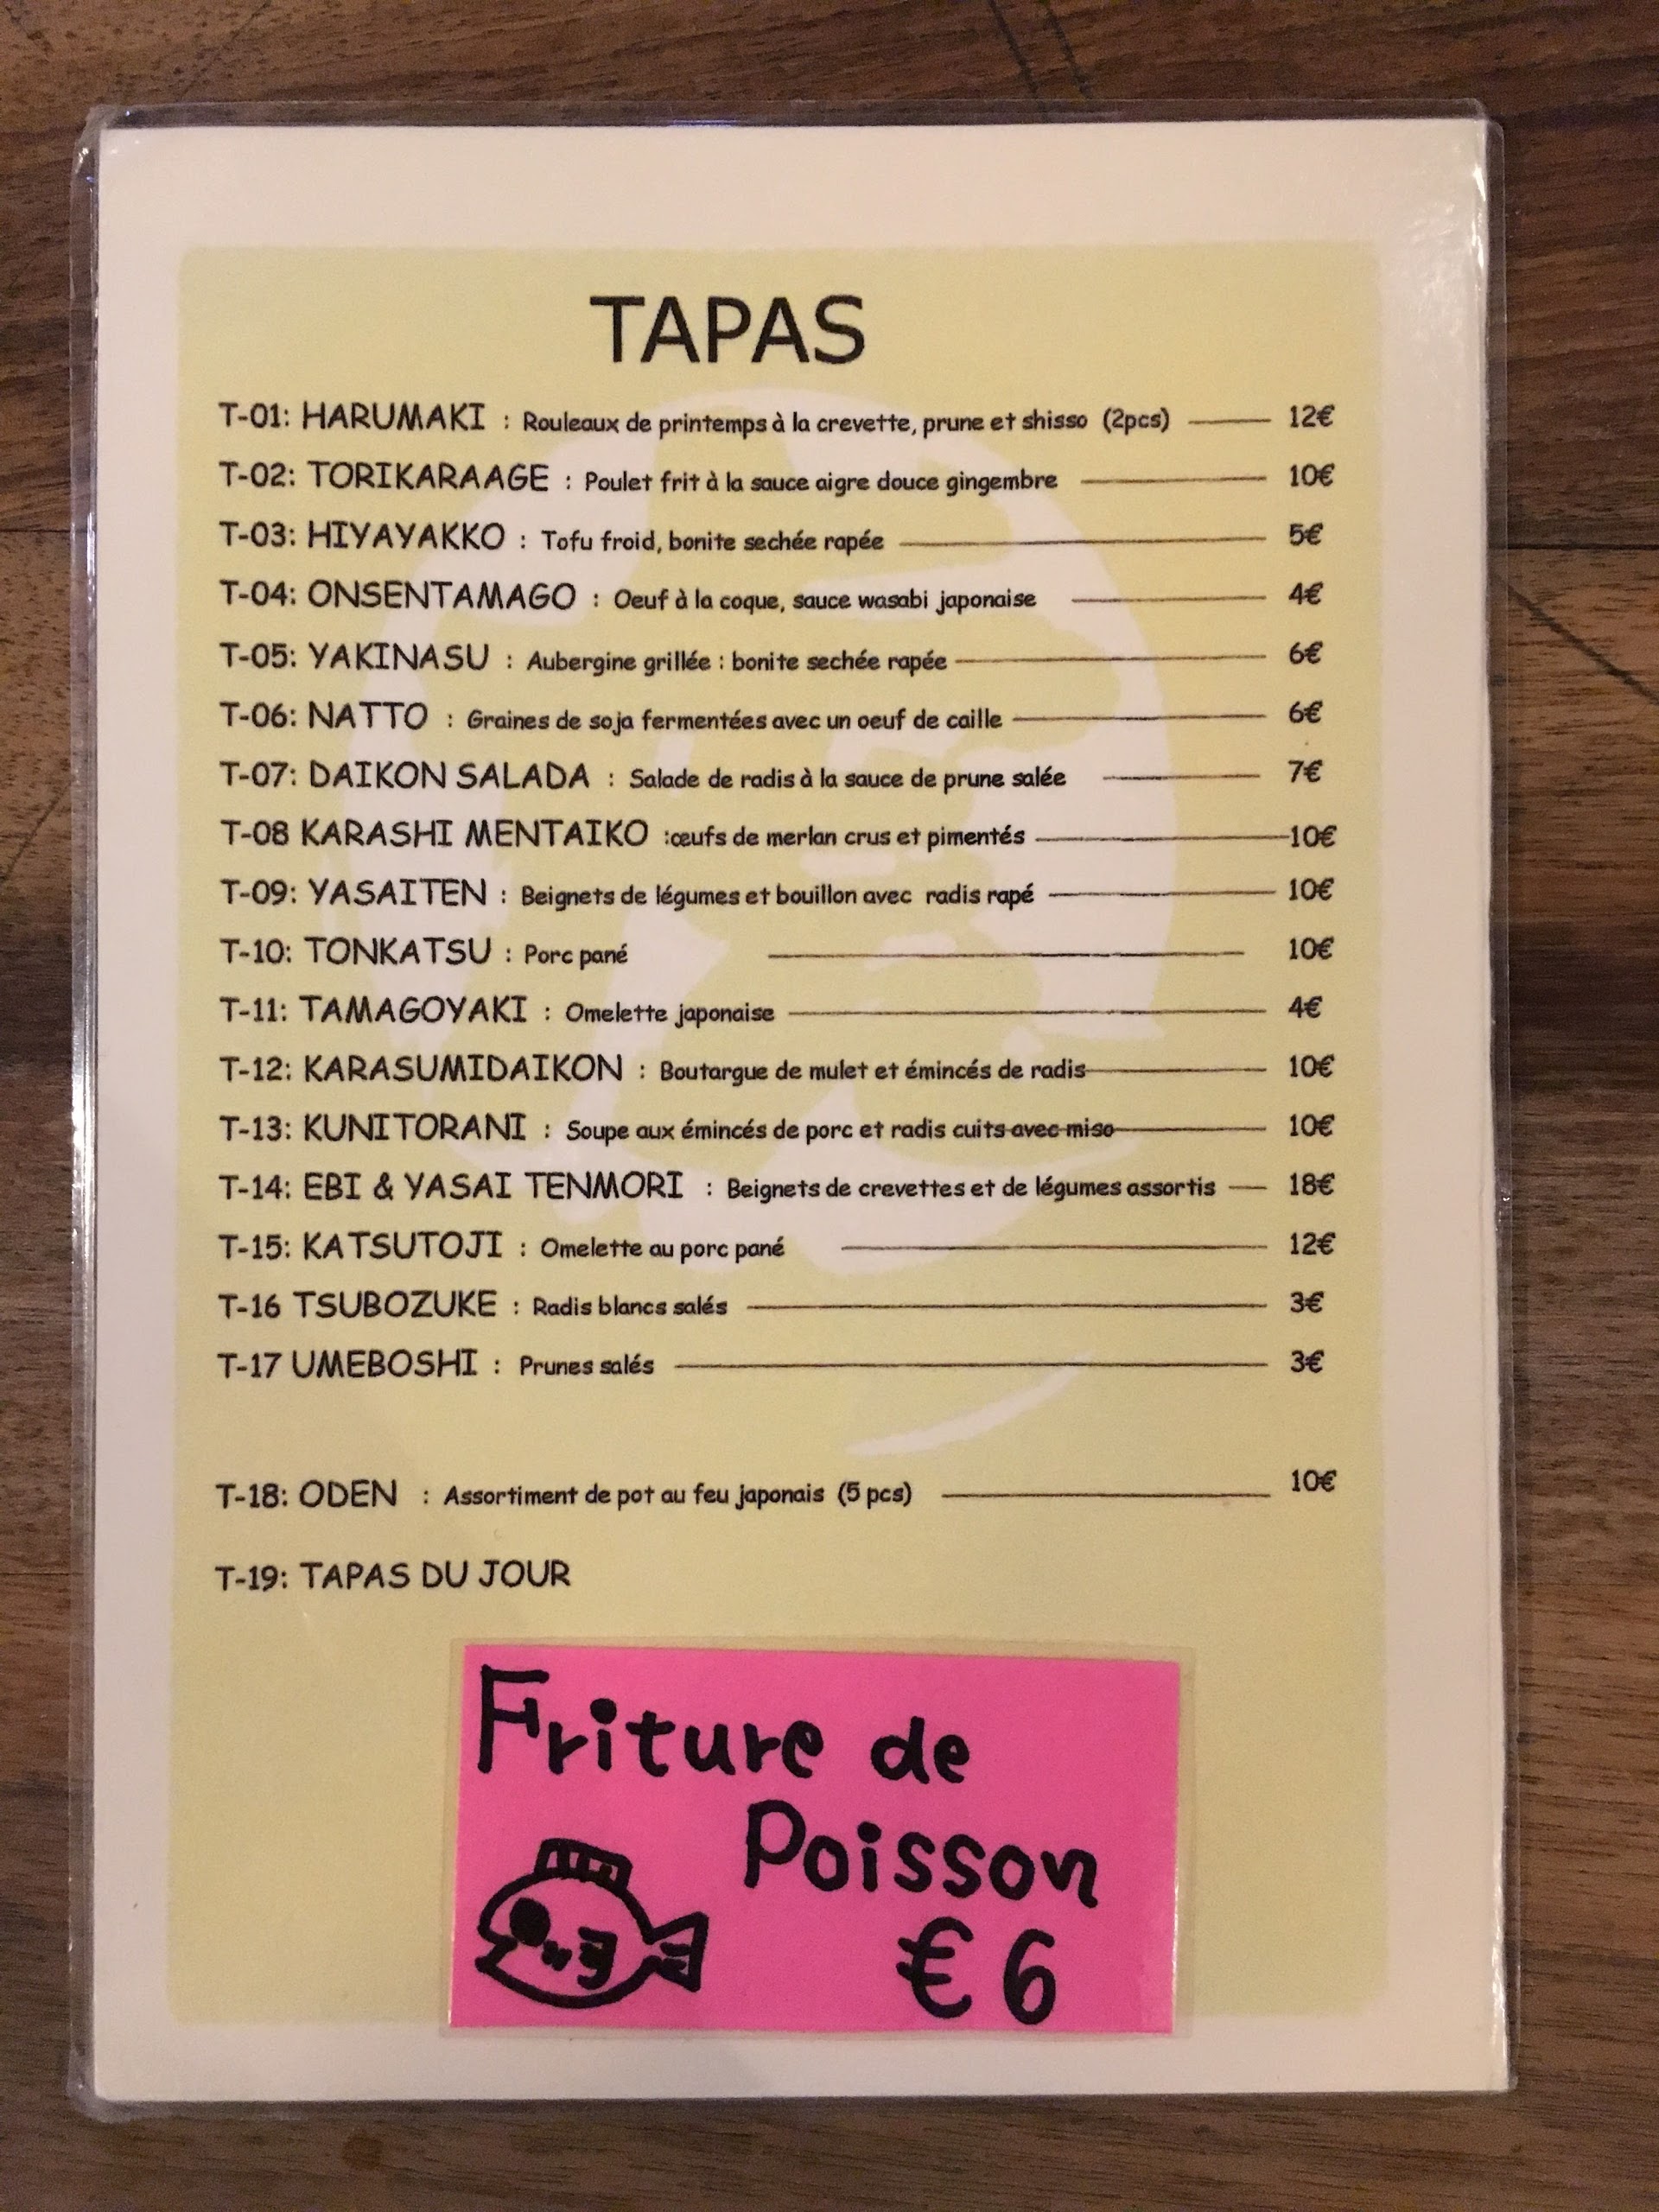 TAPAS
T-01: HARUMAKI : Rouleaux de printemps à la crevette, prune et shisso (2pcs) 12€
T-02: TORIKARAAGE : Poulet frit à la sauce aigre douce gingembre 10€
T-03: HIYAYAKKO : Tofu froid, bonite sechée rapée 5€
T-04: ONSENTAMAGO : Oeuf à la coque, sauce wasabi japonaise 4€
T-05: YAKINASU : Aubergine grillée : bonite sechée rapée 6€
T-06: NATTO : Graines de soja fermentées avec un oeuf de caille 6€
T-07: DAIKON SALADA : Salade de radis à la sauce de prune salée 7€
T-08 KARASHI MENTAIKO :œufs de merlan crus et pimentés 10€
T-09: YASAITEN : Beignets de légumes et bouillon avec radis rapé 10€
T-10: TONKATSU : Porc pané 10€
T-11: TAMAGOYAKI : Omelette japonaise 4€
T-12: KARASUMIDAIKON : Boutargue de mulet et émincés de radis 10€
T-13: KUNITORANI : Soupe aux émincés de porc et radis cuits avec miso 10€
T-14: EBI & YASAI TENMORI : Beignets de crevettes et de légumes assortis 18€
T-15: KATSUTOJI : Omelette au porc pané 12€
T-16 TSUBOZUKE : Radis blancs salés 3€
T-17 UMEBOSHI : Prunes salés 3€
T-18: ODEN : Assortiment de pot au feu japonais (5 pcs) 10€
T-19: TAPAS DU JOUR
Friture de
Poisson
€6